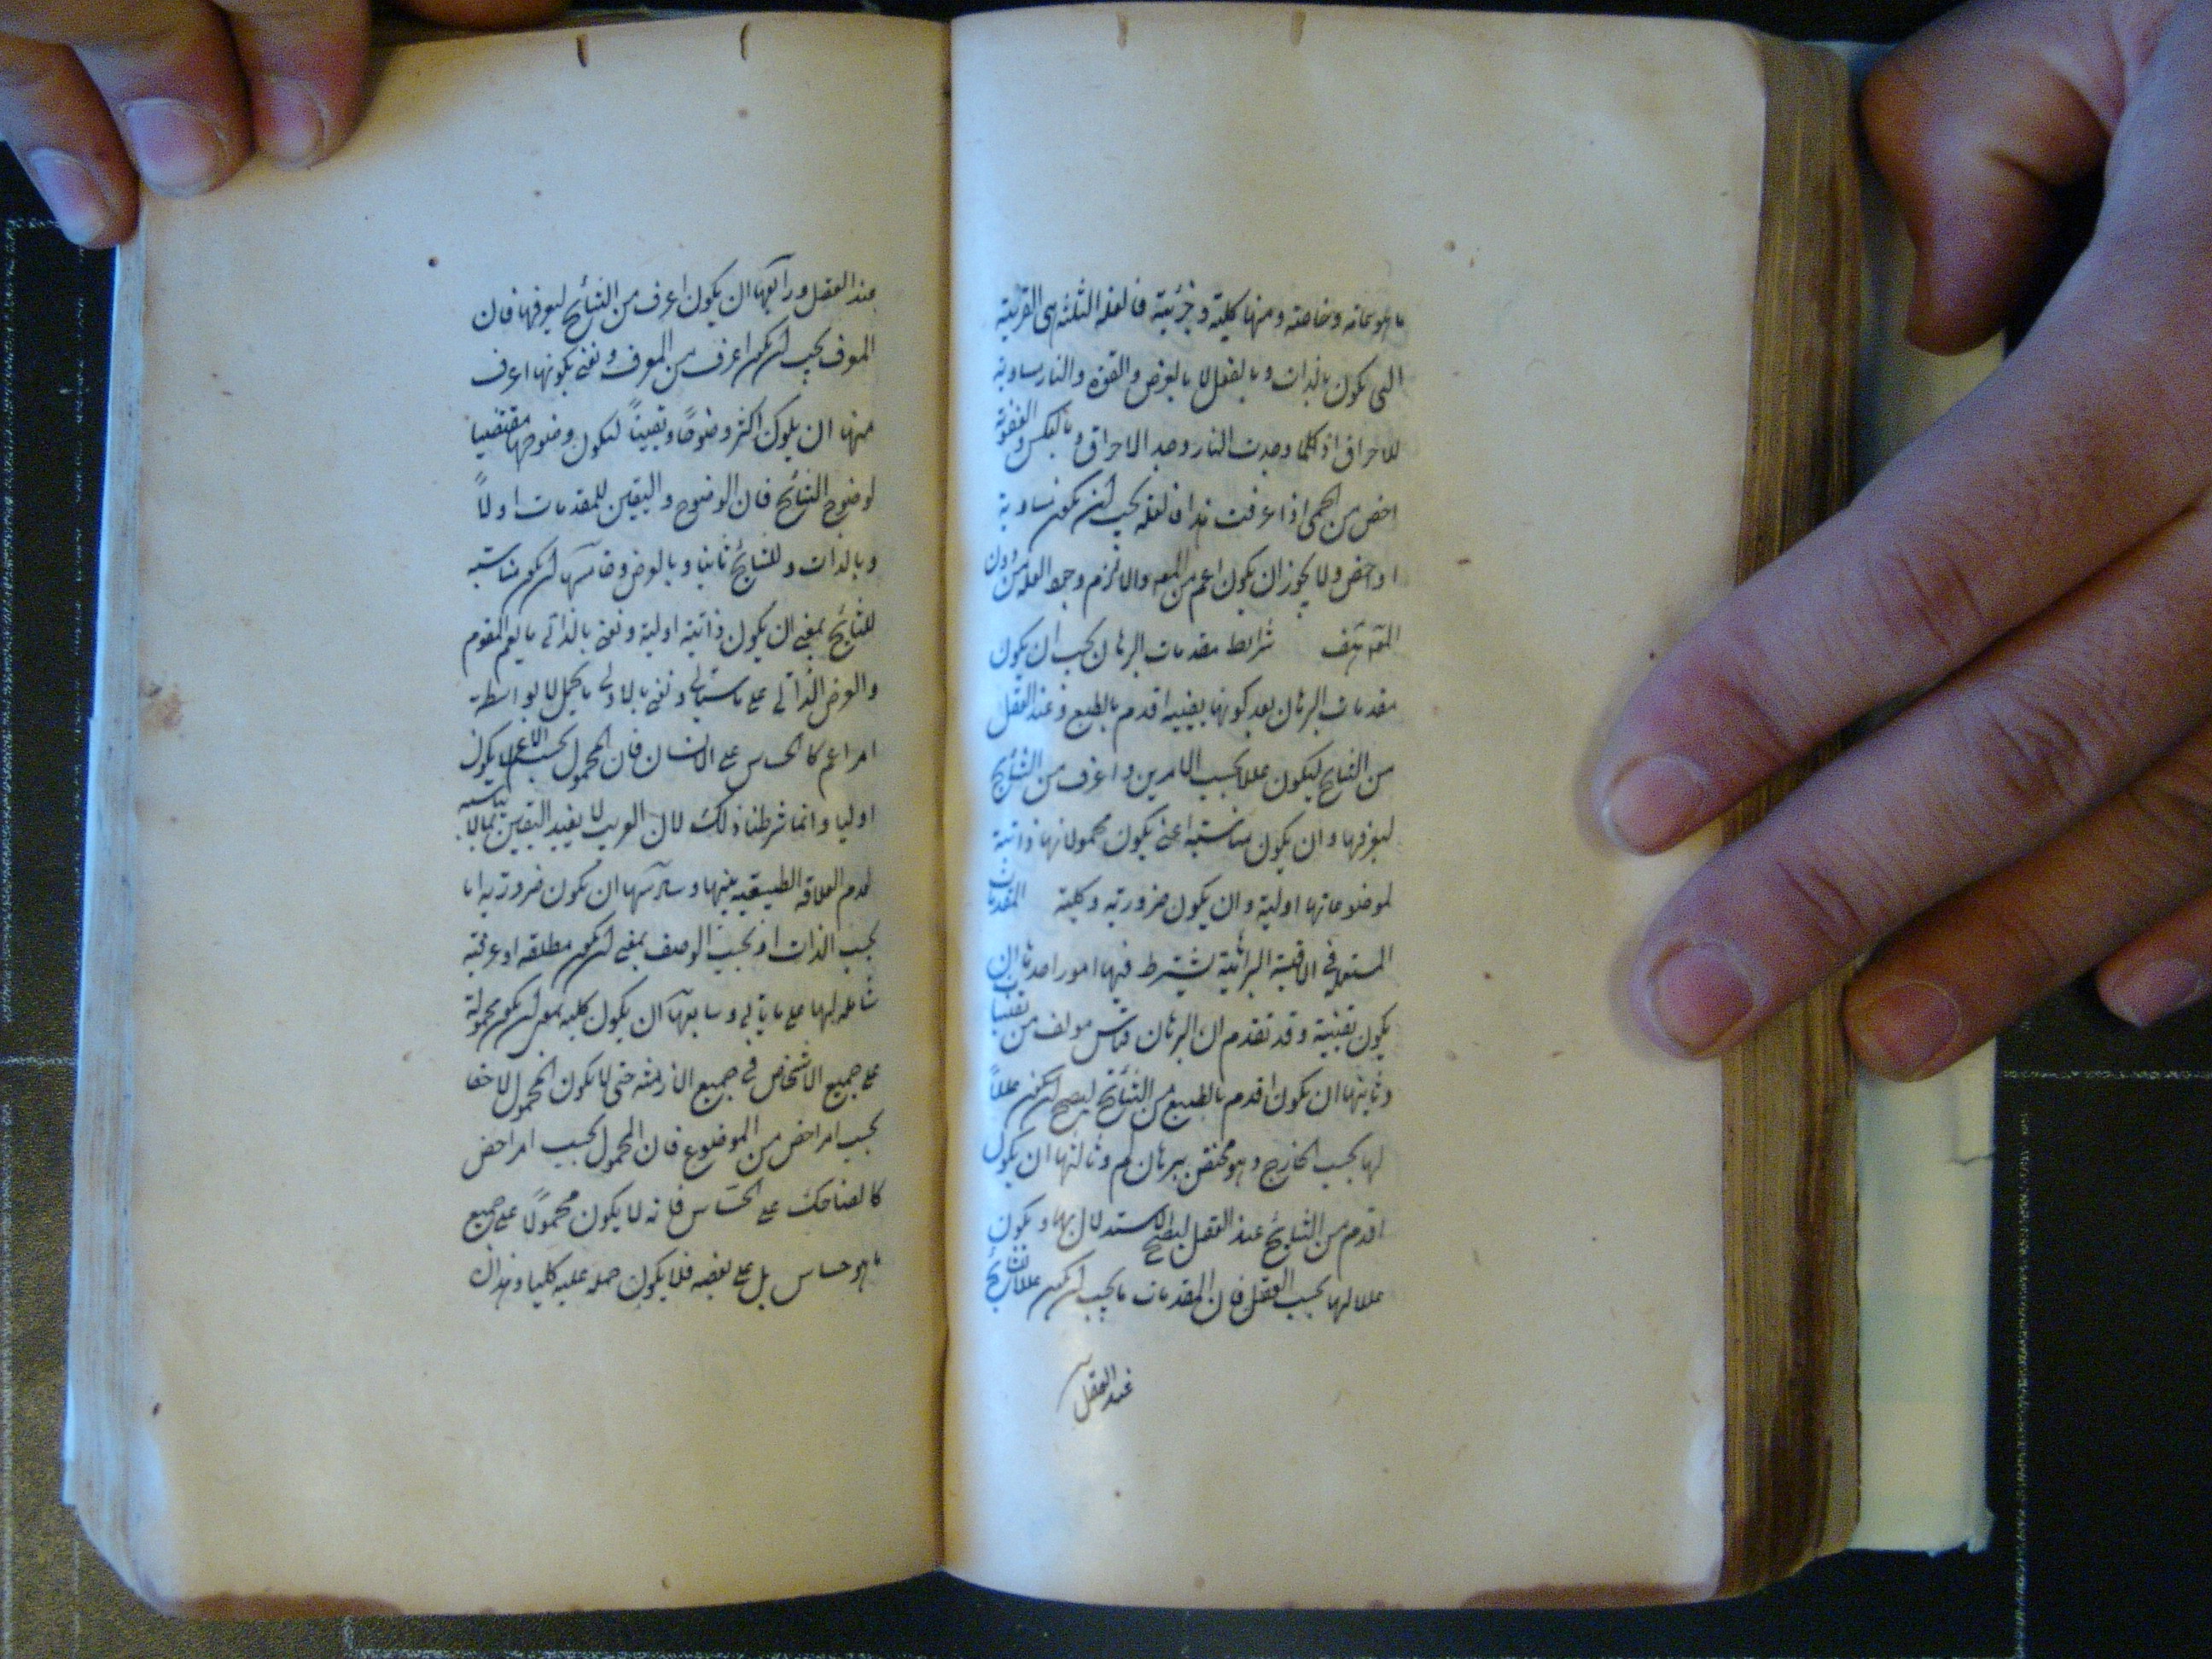 ما هو عامة وخاصة ومنها كلية وجزئية فالعلة الثلثة هى القريبة
التى تكون بالذات وبالفعل لا بالعرض والقوة والنار مساوية
للاحراق اذ كلما وجدت النار وجد الاحراق وبالعكس والعفونة
اخص من الحمى اذا عرفت هذا فالعلة يجب ان تكون مساوية
او اخص ولا يجوز ان يكون اعم من المعلول والا لزم وجود العلة من دون
شرايط مقدمات البرهان يجب ان يكون
مقدمات البرهان بعد كونها يقينية اقدم بالطبع وعند العقل
من النتايج ليكون عللا بحسب الامرين واعرف من النتايج
ليعرفها وان يكون مناسبة اعنى يكون محمولاتها ذاتية
لموضوعاتها اولية وان يكون ضرورية وكلية المقدمات
المستعملة فى الاقيسة البرهانية يشترط فيها امور احدها ان
يكون يقينية وقد تقدم ان البرهان قياس مولف من يقينيات
وثانيها ان يكون اقدم بالطبع من النتايج ليصح ان يكون عللاً
لها بحسب الخارج وهو مختص ببرهان لم وثالثها ان يكون
اقدم من النتايج عند العقل ليصح الاستدلال بها ويكون
عللا لها بحسب العقل فان المقدمات يجب ان يكون عللا للنتايج
عند العقل
عند العقل ورابعها ان يكون اعرف من النتايج ليعرفها فان
المعرف يجب ان يكون اعرف من المعرف ونعنى بكونها اعرف
منها ان يكون اكثر وضوحًا ويقيناً ليكون وضوحها مقتضيا
لوضوح النتايج فان الوضوح واليقين للمقدمات اولاً
وبالذات وللنتايج ثانيا وبالعرض وخامسها ان يكون مناسبة
للنتايج بمعنى ان يكون ذاتية اولية ونعنى بالذاتى ما يعم المقوم
والعرض الذاتى على ما سياتى ونعنى بالاولى ما يحمل لا بواسطة
امر اعم كالحساس على الانسان فان المحمول بحسب الاعم لا يكون
اوليا وانما شرطنا ذلك لان الغريب لا يفيد اليقين بما لا يناسبه
لعدم العلاقة الطبيعية بينها وسادسها ان تكون ضرورية اما
بحسب الذات او بحسب الوصف بمعنى ان يكون مطلقة او عرفية
شاملة لها على ما ياتى وسابعها ان يكون كلية بمعنى ان يكون محمولة
على جميع الاشخاص فى جميع الازمنة حتى لا يكون المحمول لاحقا
بحسب امر اخص من الموضوع فان المحمول بحسب امر اخص
كالضاحك على الحساس فانه لا يكون محمولاً على جميع
ما هو حساس بل على بعضه فلا يكون حمله عليه كليا وهذان